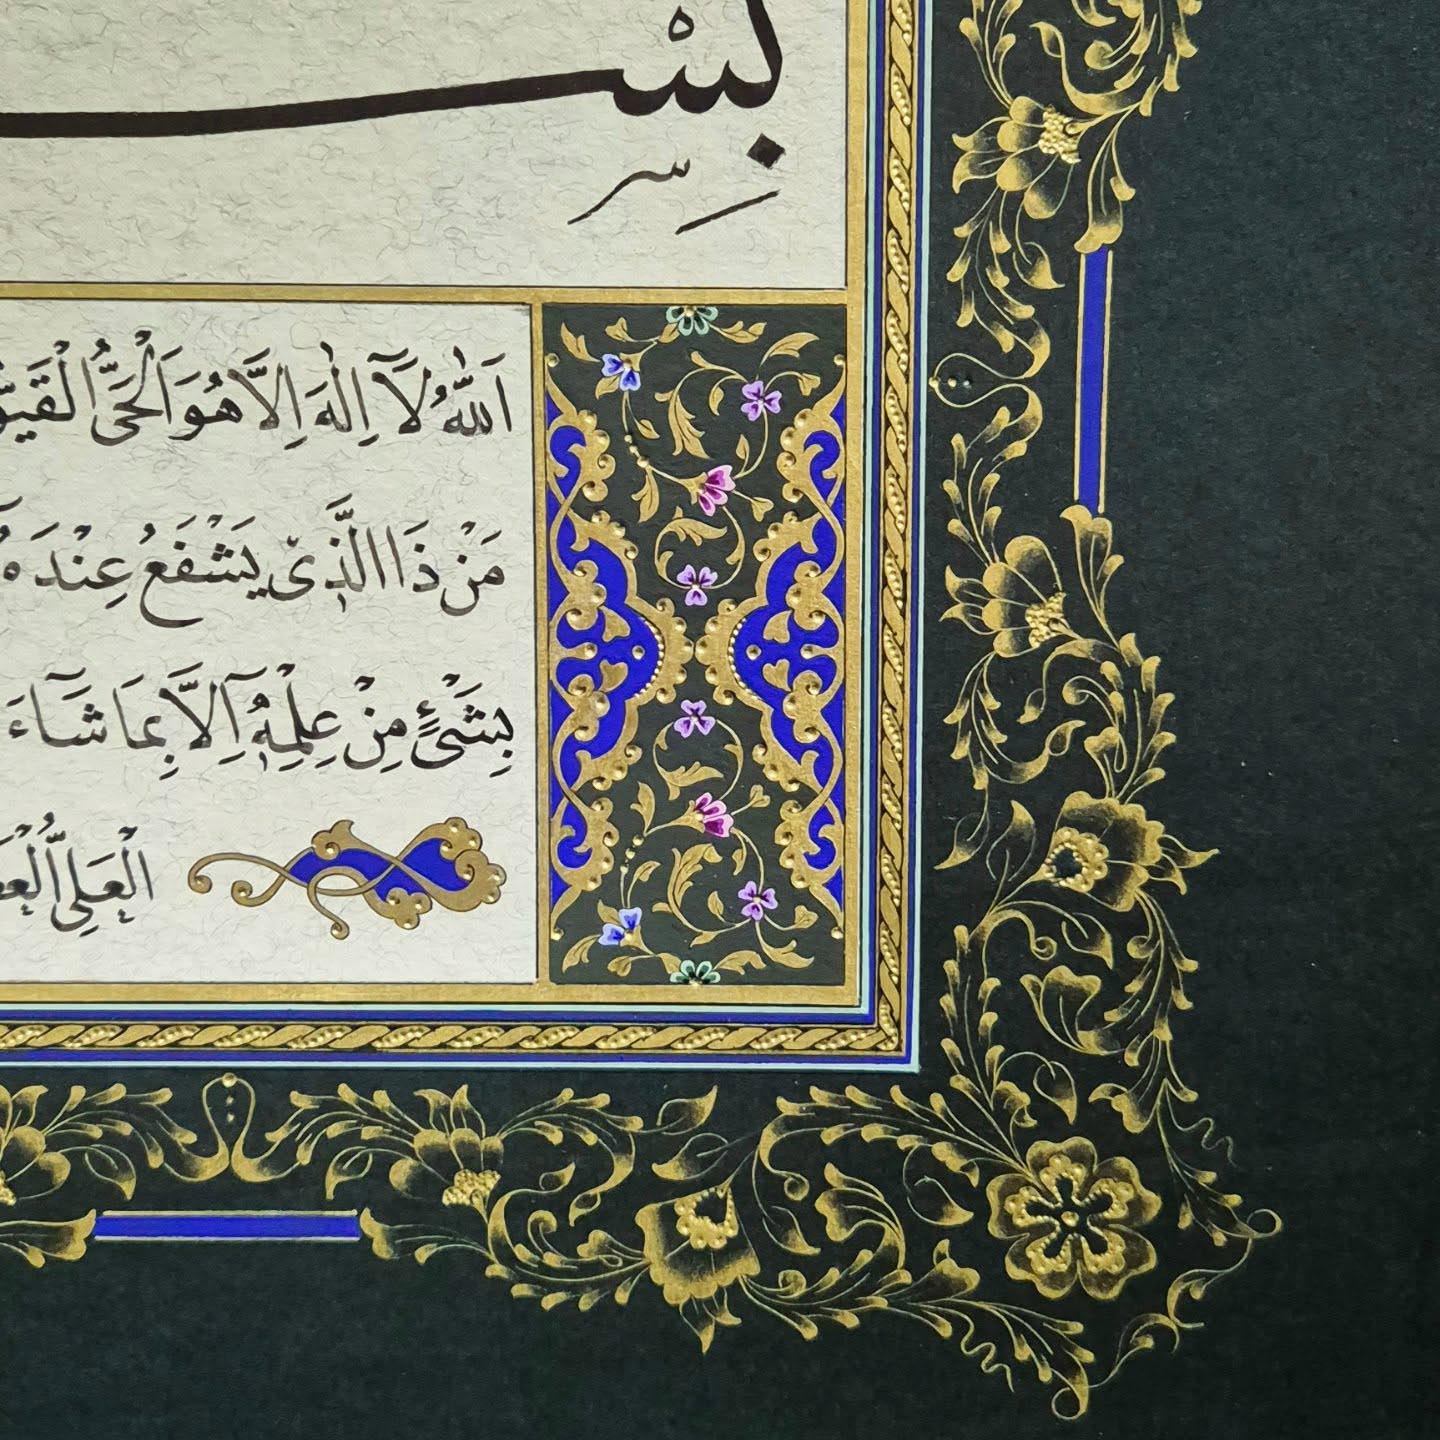 بِسْـــ
اَللّٰهُ لَآ اِلٰهَ اِلَّا هُوَ اَلْحَىُّ الْقَيُّ
مَنْ ذَا الَّذٖى يَشْفَعُ عِنْدَهُٓ
بِشَىْءٍ مِنْ عِلْمِهٖٓ اِلَّا بِمَا شَٓاءَ
الْعَلِىُّ الْعَظ